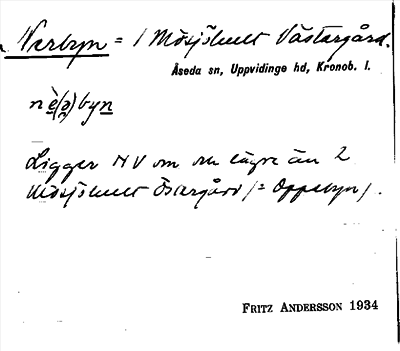 Nerbyn = 1 Mösjöhult Västergård.
Åseda sn, Uppvidinge hd, Kronob. l.
nè(ə)byn
Ligger NV om o. lägre än 2
Mösjöhult Östergård (= Oppebyn).
FRITZ ANDERSSON 1934